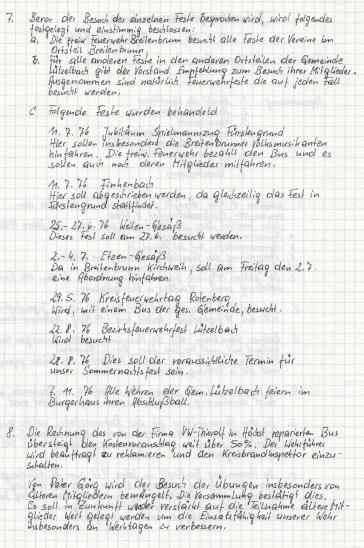 7. Bevor der Besuch der einzelnen Feste besprochen wird, wird folgendes
festgelegt und einstimmig beschlossen:
a. Die freiw. Feuerwehr Breitenbrunn besucht alle Feste der Vereine im
Ortsteil Breitenbrunn.
b. Für alle anderen Feste in den anderen Ortsteilen der Gemeinde
Lützelbach gibt der Vorstand Empfehlung zum Besuch ihrer Mitglieder.
Ausgenommen sind natürlich Feuerwehrfeste die auf jeden Fall
besucht werden.
C Folgende Feste wurden behandelt
11. 7. 76 Jubiläum Spielmannszug Fürstengrund
Hier sollen insbesondere die Breitenbrunner Volksmusikanten
hinfahren. Die freiw. Feuerwehr bezahlt den Bus und es
sollen auch noch deren Mitglieder mitfahren.
11. 7. 76 Finkenbach
Hier soll abgeschrieben werden, da gleichzeitig das Fest in
Fürstengrund stattfindet.
25.- 27. 6. 76 Weiten-Gesäß
Dieses Fest soll am 27.6. besucht werden.
2.- 4. 7. Etzen-Gesäß
Da in Breitenbrunn Kirchweih, soll am Freitag den 2.7.
eine Abordnung hinfahren.
29.5. 76 Kreisfeuerwehrtag Rotenberg
Wird, mit einem Bus der ges. Gemeinde, besucht.
22. 8. 76 Bezirksfeuerwehrfest Lützelbach
Wird besucht
28. 8. 76 Dies soll der voraussichtliche Termin für
unser Sommernachtsfest sein.
7. 11. 76 Alle Wehren der Gem. Lützelbach feiern im
Bürgerhaus ihren Abschlußball.
8. Die Rechnung des von der Firma VW-Thierolf in Höchst reparierten Bus
übersteigt den Kostenvoranschlag weit über 50%. Der Wehrführer
wird beauftragt zu reklamieren und den Kreisbrandinspektor einzu-
schalten.
Von Peter Görg wird der Besuch der Übungen insbesonders von
älteren Mitgliedern bemängelt. Die Versammlung bestätigt dies.
Es soll in Zukunft wieder verstärkt auf die Teilnahme älterer Mit-
glieder Wert gelegt werden um die Einsatzfähigkeit unserer Wehr
insbesonders an Werktagen zu verbessern.